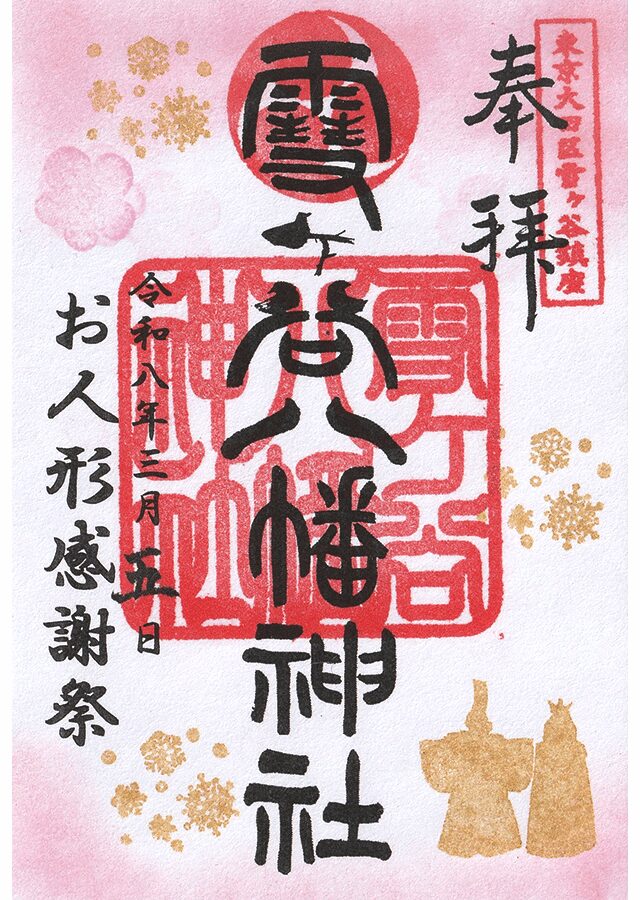 東京大田区雪ヶ谷鎮座
奉拝
雪ヶ谷八幡神社
雪ヶ谷
八幡
神社
令和八年三月五日
お人形感謝祭